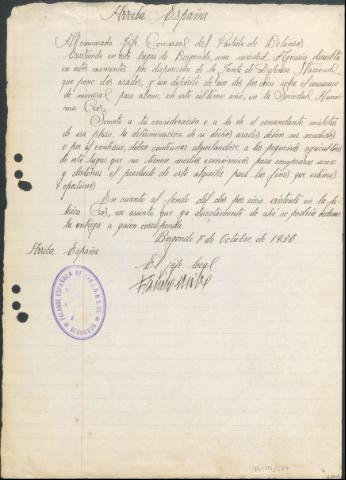 Arriba España
Al camarada Jefe Comarcal del Partido de Betanzos
Existiendo en este lugar de Bergondo, una sociedad Agraria disuelta
en estos momentos por disposición de la Junta de Defensa Nacional
que posee dos arados, y un depósito de dos por ción sobre el consumo
de mineral para abono, en este último año, en la Sociedad Anóni
ma Cros,
Someto a la consideración o a la de el comandante militar
de esa plaza, la determinación de si dichos arados deben ser vendidos
o por el contrario, deben continuar alquilandose a los pequeños agricultores
de este lugar que no tienen medios económicos para comprarse uno
y destinar el producto de este alquiler para los fines que estimen
oportunos.
En cuanto al fondo del dos por ción existente en la fá
brica Cros, es asunto que ya directamente de ahí se podría
la entrega a quien corresponda.
Bergondo 7 de Octubre de 1936
Arriba España
El jefe local
FALANGE ESPAÑOLA DE LAS J.O.N.S. DE BERGONDO